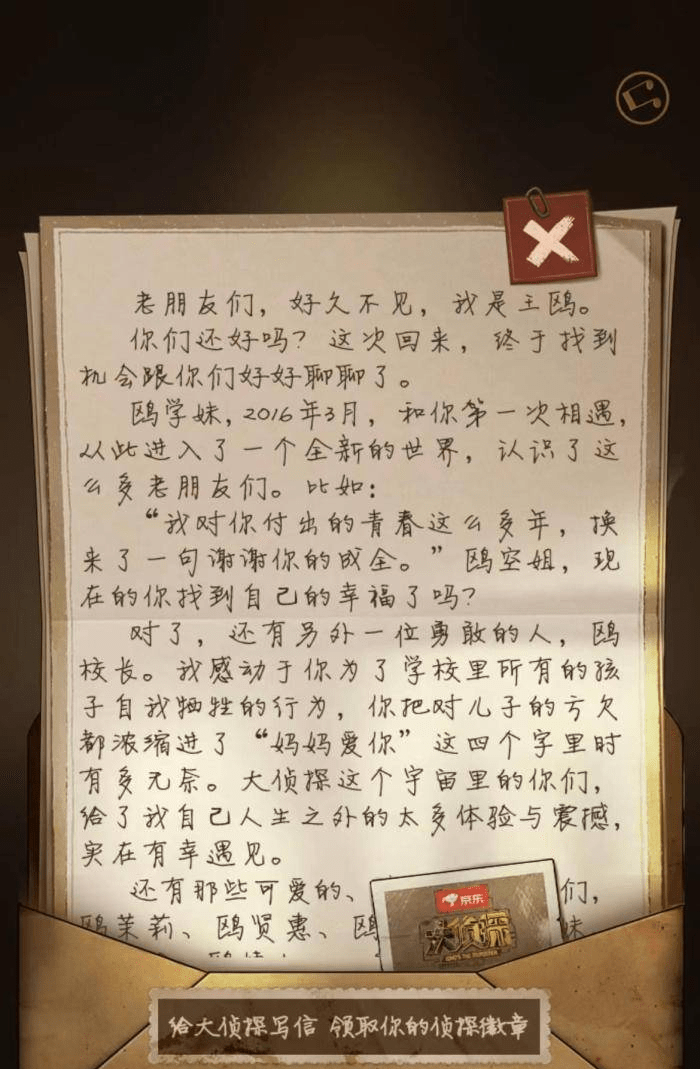 老朋友们，好久不见，我是王鸥。
你们还好吗？这次回来，终于找到
机会跟你们好好聊聊了。
鸥学妹，2016年3月，和你第一次相遇，
从此进入了一个全新的世界，认识了这
么多老朋友们。比如：
“我对你付出的青春这么多年，换
来了一句谢谢你的成全。”鸥空姐，现
在的你找到自己的幸福了吗？
对了，还有另外一位勇敢的人，鸥
校长。我感动于你为了学校里所有的孩
子自我牺牲的行为，你把对儿子的亏欠
都浓缩进了“妈妈爱你”这四个字里时
有多无奈。大侦探这个宇宙里的你们，
给了我自己人生之外的太多体验与震撼，
实在有幸遇见。
还有那些可爱的、 们，
鸥茉莉、鸥贤惠、鸥 妹
京东
大侦探
给大侦探写信 领取你的侦探徽章